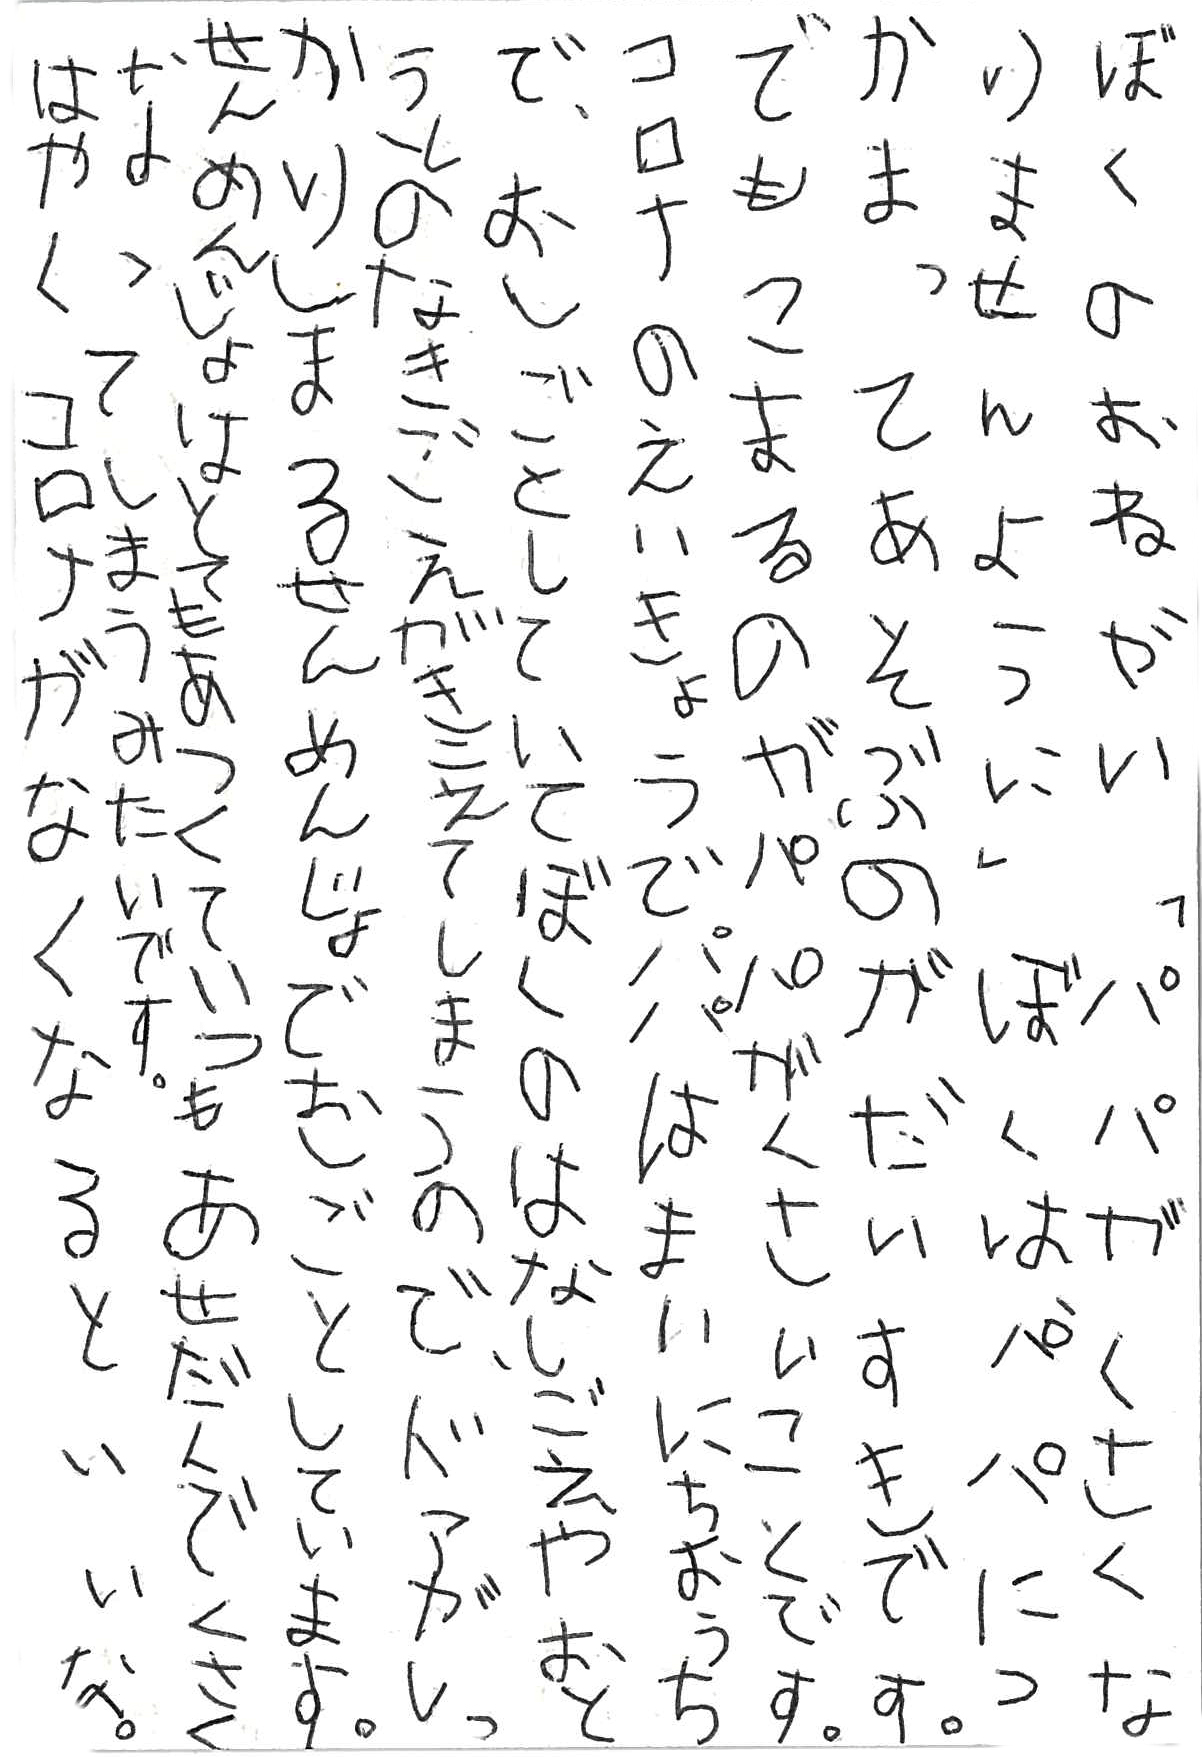 ぼくのおねがい「パパがくさくな
りませんように」ぼくはパパにつ
かまってあそぶのがだいすきです。
でもこまるのがパパがくさいことです。
コロナのえいきょうでパパはまいにちおうち
で、おしごとしていてぼくのはなしごえやおと
うとのなきごえがきこえてしまうので、ドアがしっ
かりしまるせんめんじょでおしごとしています。
せんめんじょはとてもあつくていつもあせだんでくさく
なよってしまうみたいです。
はやくコロナがなくなるといいな。